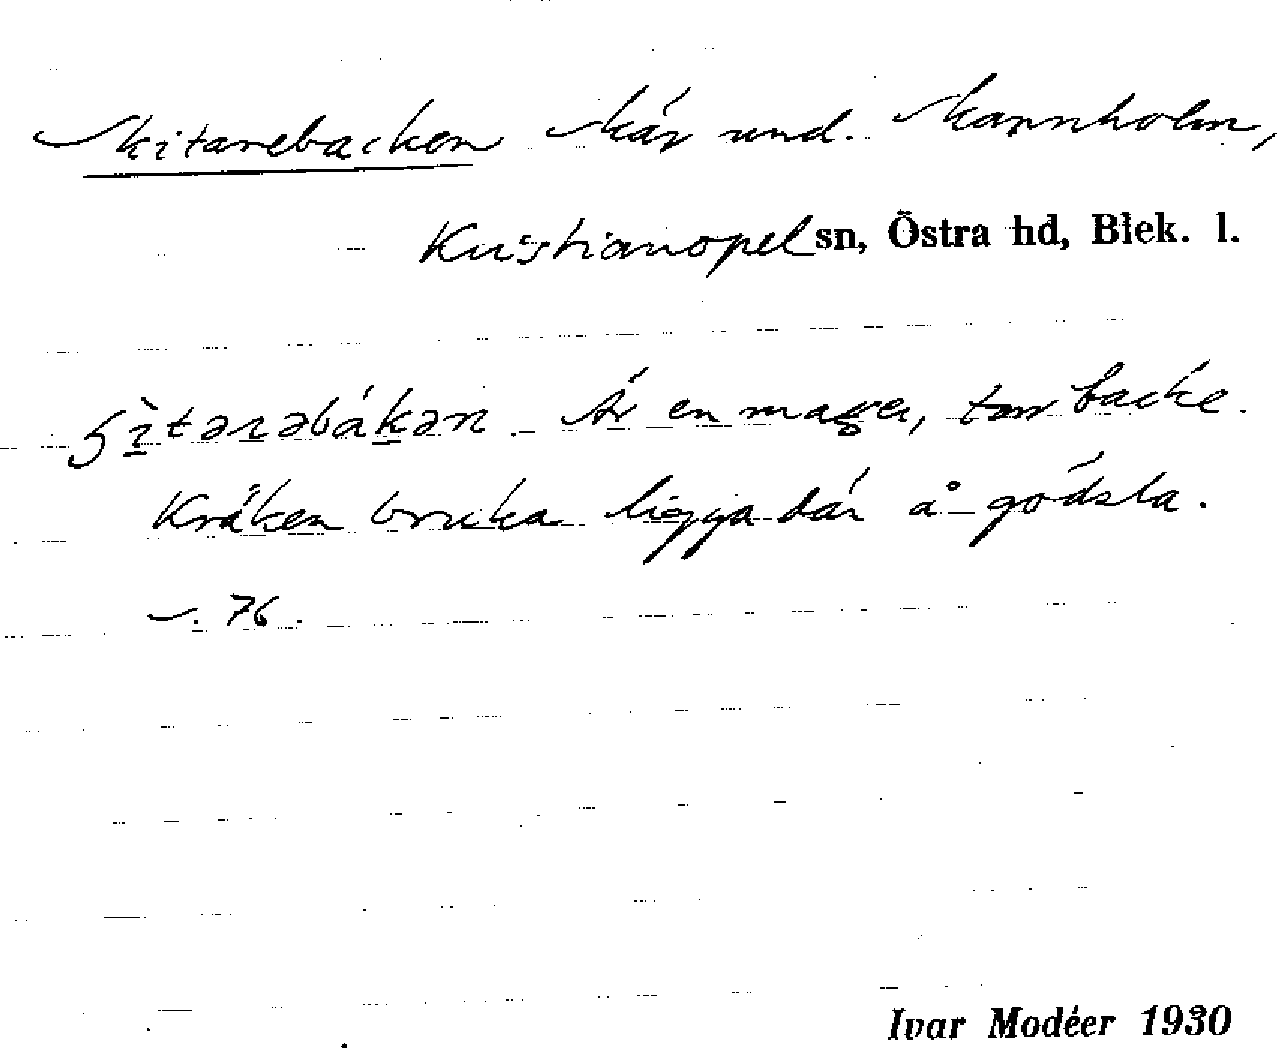 Skitarebacken skär und. Skannholm,
Kristianopel sn, Östra hd, Blek. l.
ʃìtarabákan. Är en mager, torr backe.
Kräken bruka ligga där å gödsla.
s. 76.
Ivar Modéer 1930